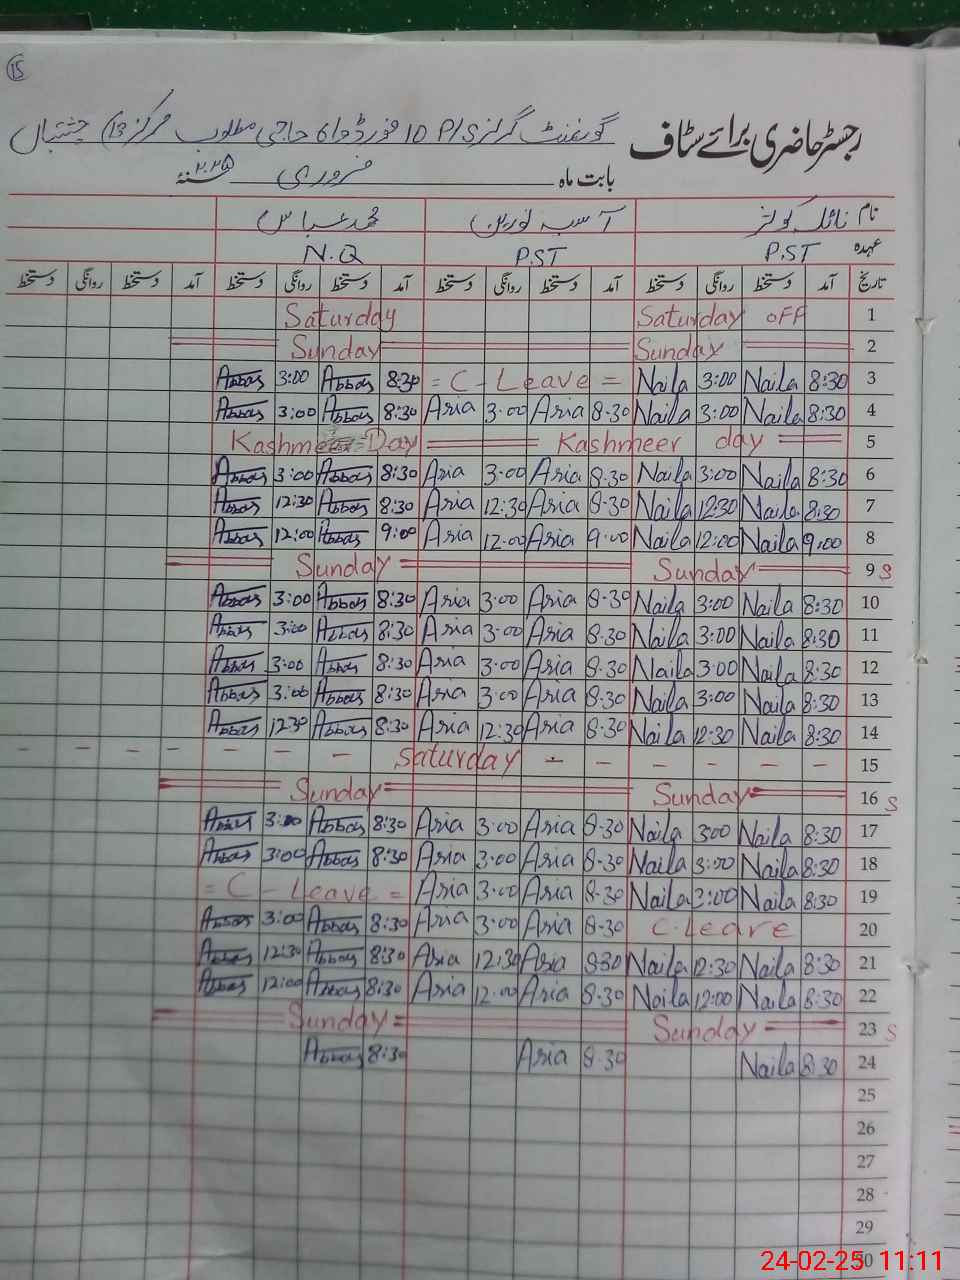 15
رجسٹر حاضری برائے سٹاف گورنمنٹ گرلز P/S 10 فورڈواہ حاجی مطلوب مرکز (13 چشتیاں
بابت ماہ فروری سنہ ۲۰۲۵
نام نائلہ کوثر آسیہ نورین محمد عباس
عہدہ P.ST P.ST N.Q
تاریخ آمد دستخط روانگی دستخط آمد دستخط روانگی دستخط آمد دستخط روانگی دستخط آمد دستخط روانگی دستخط
1 Saturday OFF Saturday
2 Sunday Sunday
3 8:30 Naila 3:00 Naila = C - Leave = 8:30 Abbas 3:00 Abbas
4 8:30 Naila 3:00 Naila 8.30 Aria 3.00 Aria 8:30 Abbas 3:00 Abbas
5 Kashmeer day Kashmeer Day
6 8:30 Naila 3:00 Naila 8.30 Aria 3.00 Aria 8:30 Abbas 3:00 Abbas
7 8:30 Naila 12:30 Naila 8.30 Aria 12.30 Aria 8:30 Abbas 12:30 Abbas
8 9:00 Naila 12:00 Naila 9.00 Aria 12.00 Aria 9:00 Abbas 12:00 Abbas
9 S Sunday Sunday
10 8:30 Naila 3:00 Naila 8.30 Aria 3.00 Aria 8:30 Abbas 3:00 Abbas
11 8:30 Naila 3:00 Naila 8.30 Aria 3.00 Aria 8:30 Abbas 3:00 Abbas
12 8:30 Naila 3:00 Naila 8.30 Aria 3.00 Aria 8:30 Abbas 3:00 Abbas
13 8:30 Naila 3:00 Naila 8.30 Aria 3.00 Aria 8:30 Abbas 3:00 Abbas
14 8:30 Naila 12:30 Naila 8.30 Aria 12.30 Aria 8:30 Abbas 12:30 Abbas
15 - - - - - - Saturday - - - - - - -
16 S Sunday Sunday
17 8:30 Naila 3:00 Naila 8.30 Aria 3.00 Aria 8:30 Abbas 3:00 Abbas
18 8:30 Naila 3:00 Naila 8.30 Aria 3.00 Aria 8:30 Abbas 3:00 Abbas
19 8:30 Naila 3:00 Naila 8.30 Aria 3.00 Aria = C - Leave =
20 C.Leave 8.30 Aria 3.00 Aria 8:30 Abbas 3:00 Abbas
21 8:30 Naila 12:30 Naila 8.30 Aria 12.30 Aria 8:30 Abbas 12:30 Abbas
22 8:30 Naila 12:00 Naila 8.30 Aria 12.00 Aria 8:30 Abbas 12:00 Abbas
23 S Sunday Sunday
24 8:30 Naila 8.30 Aria 8:30 Abbas
25
26
27
28
29
30
24-02-25 11:11